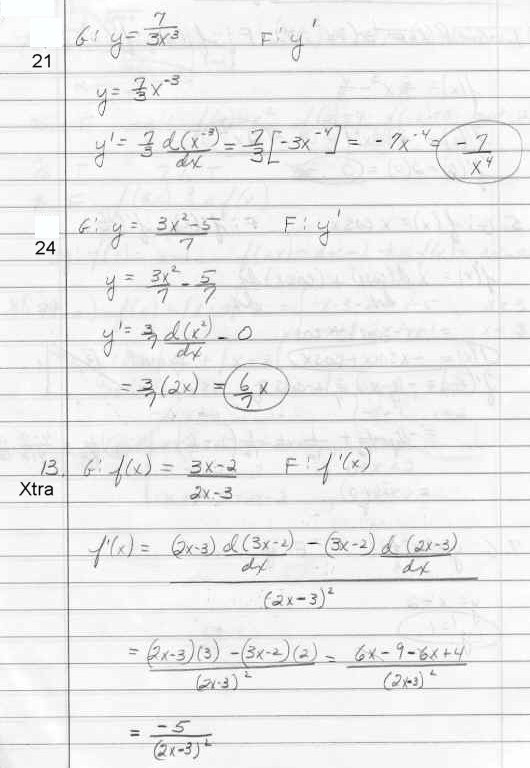 21 G: y = 7/3x³ F: y'
y = 7/3 x⁻³
y' = 7/3 d(x⁻³)/dx = 7/3 [-3x⁻⁴] = -7x⁻⁴ = -7/x⁴
24 G: y = 3x²-5/7 F: y'
y = 3x²/7 - 5/7
y' = 3/7 d(x²)/dx - 0
= 3/7 (2x) = 6/7 x
13. Xtra G: f(x) = 3x-2/2x-3 F: f'(x)
f'(x) = (2x-3) d(3x-2)/dx - (3x-2) d(2x-3)/dx / (2x-3)²
= (2x-3)(3) - (3x-2)(2)/(2x-3)² = 6x-9-6x+4/(2x-3)²
= -5/(2x-3)²